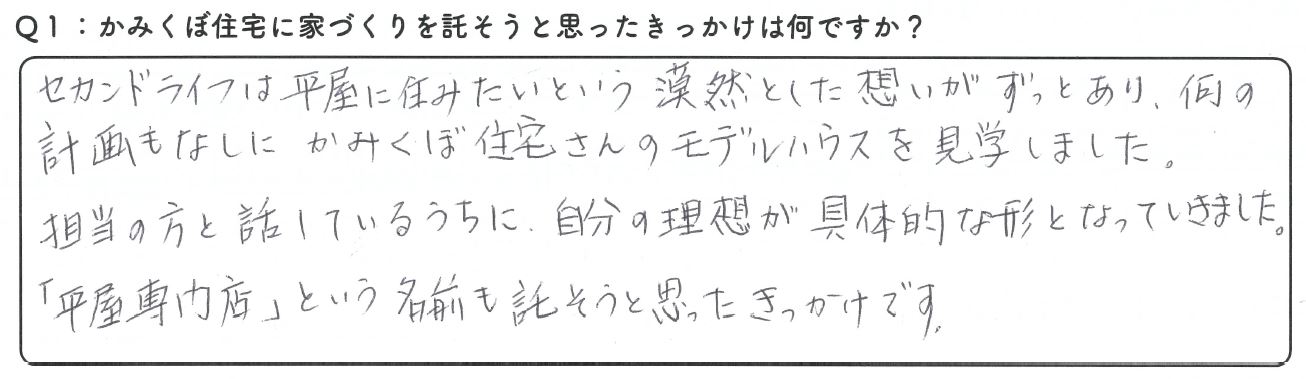 Q1：かみくぼ住宅に家づくりを託そうと思ったきっかけは何ですか？
セカンドライフは平屋に住みたいという漠然とした想いがずっとあり、何の
計画もなしにかみくぼ住宅さんのモデルハウスを見学しました。
担当の方と話しているうちに、自分の理想が具体的な形となっていきました。
「平屋専門店」という名前も託そうと思ったきっかけです。